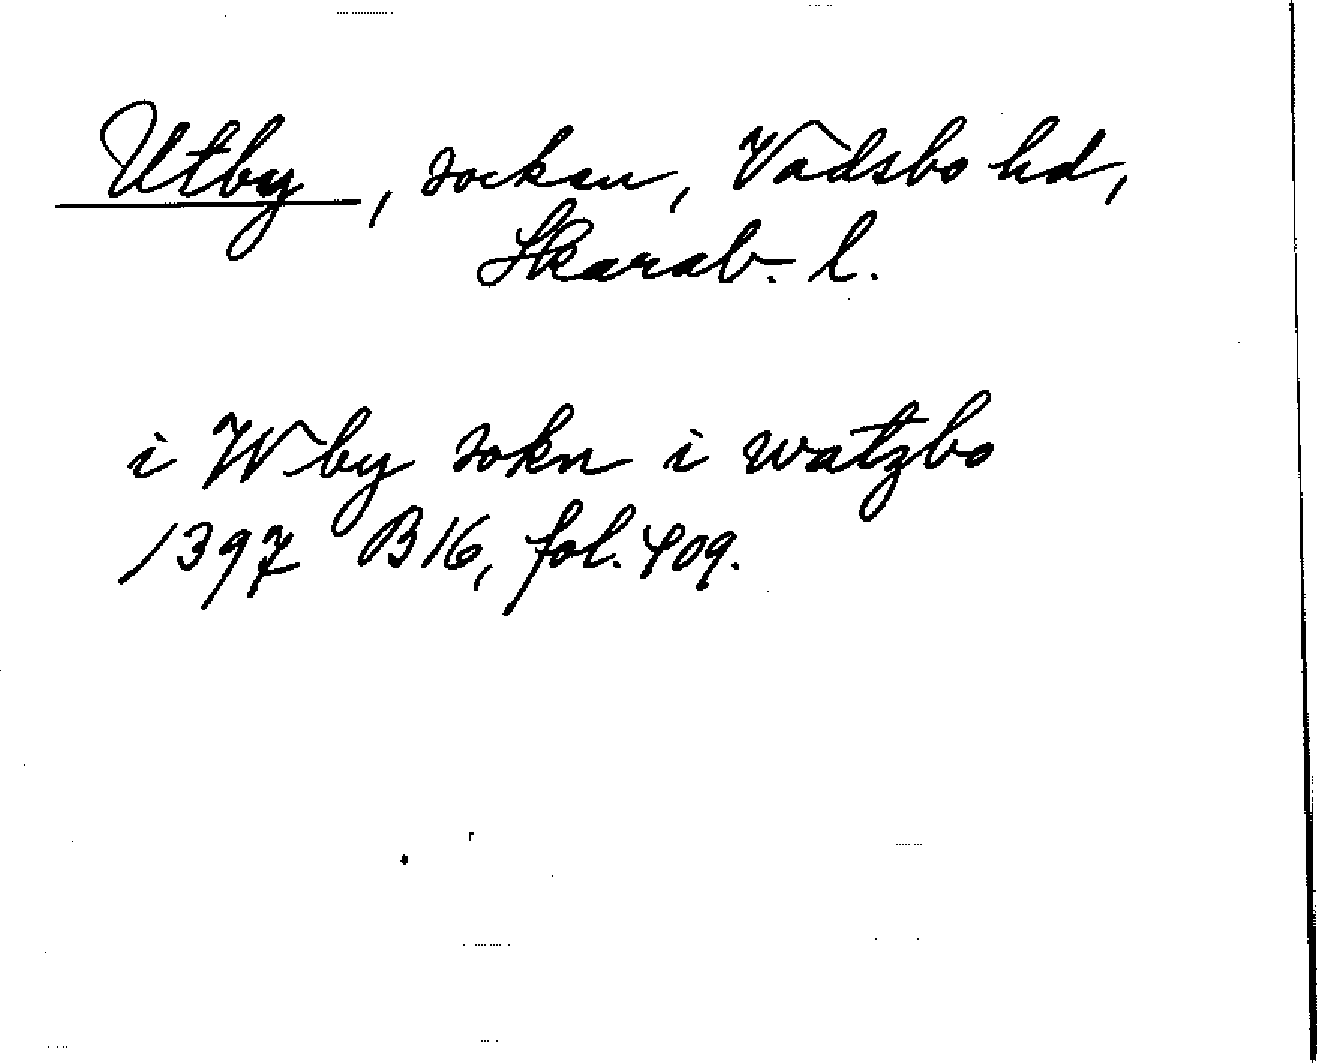 Utby, socken, Vadsbo hd,
Skarab. l.
i Wby sokn i watzbo
1397 B16, fol. 409.